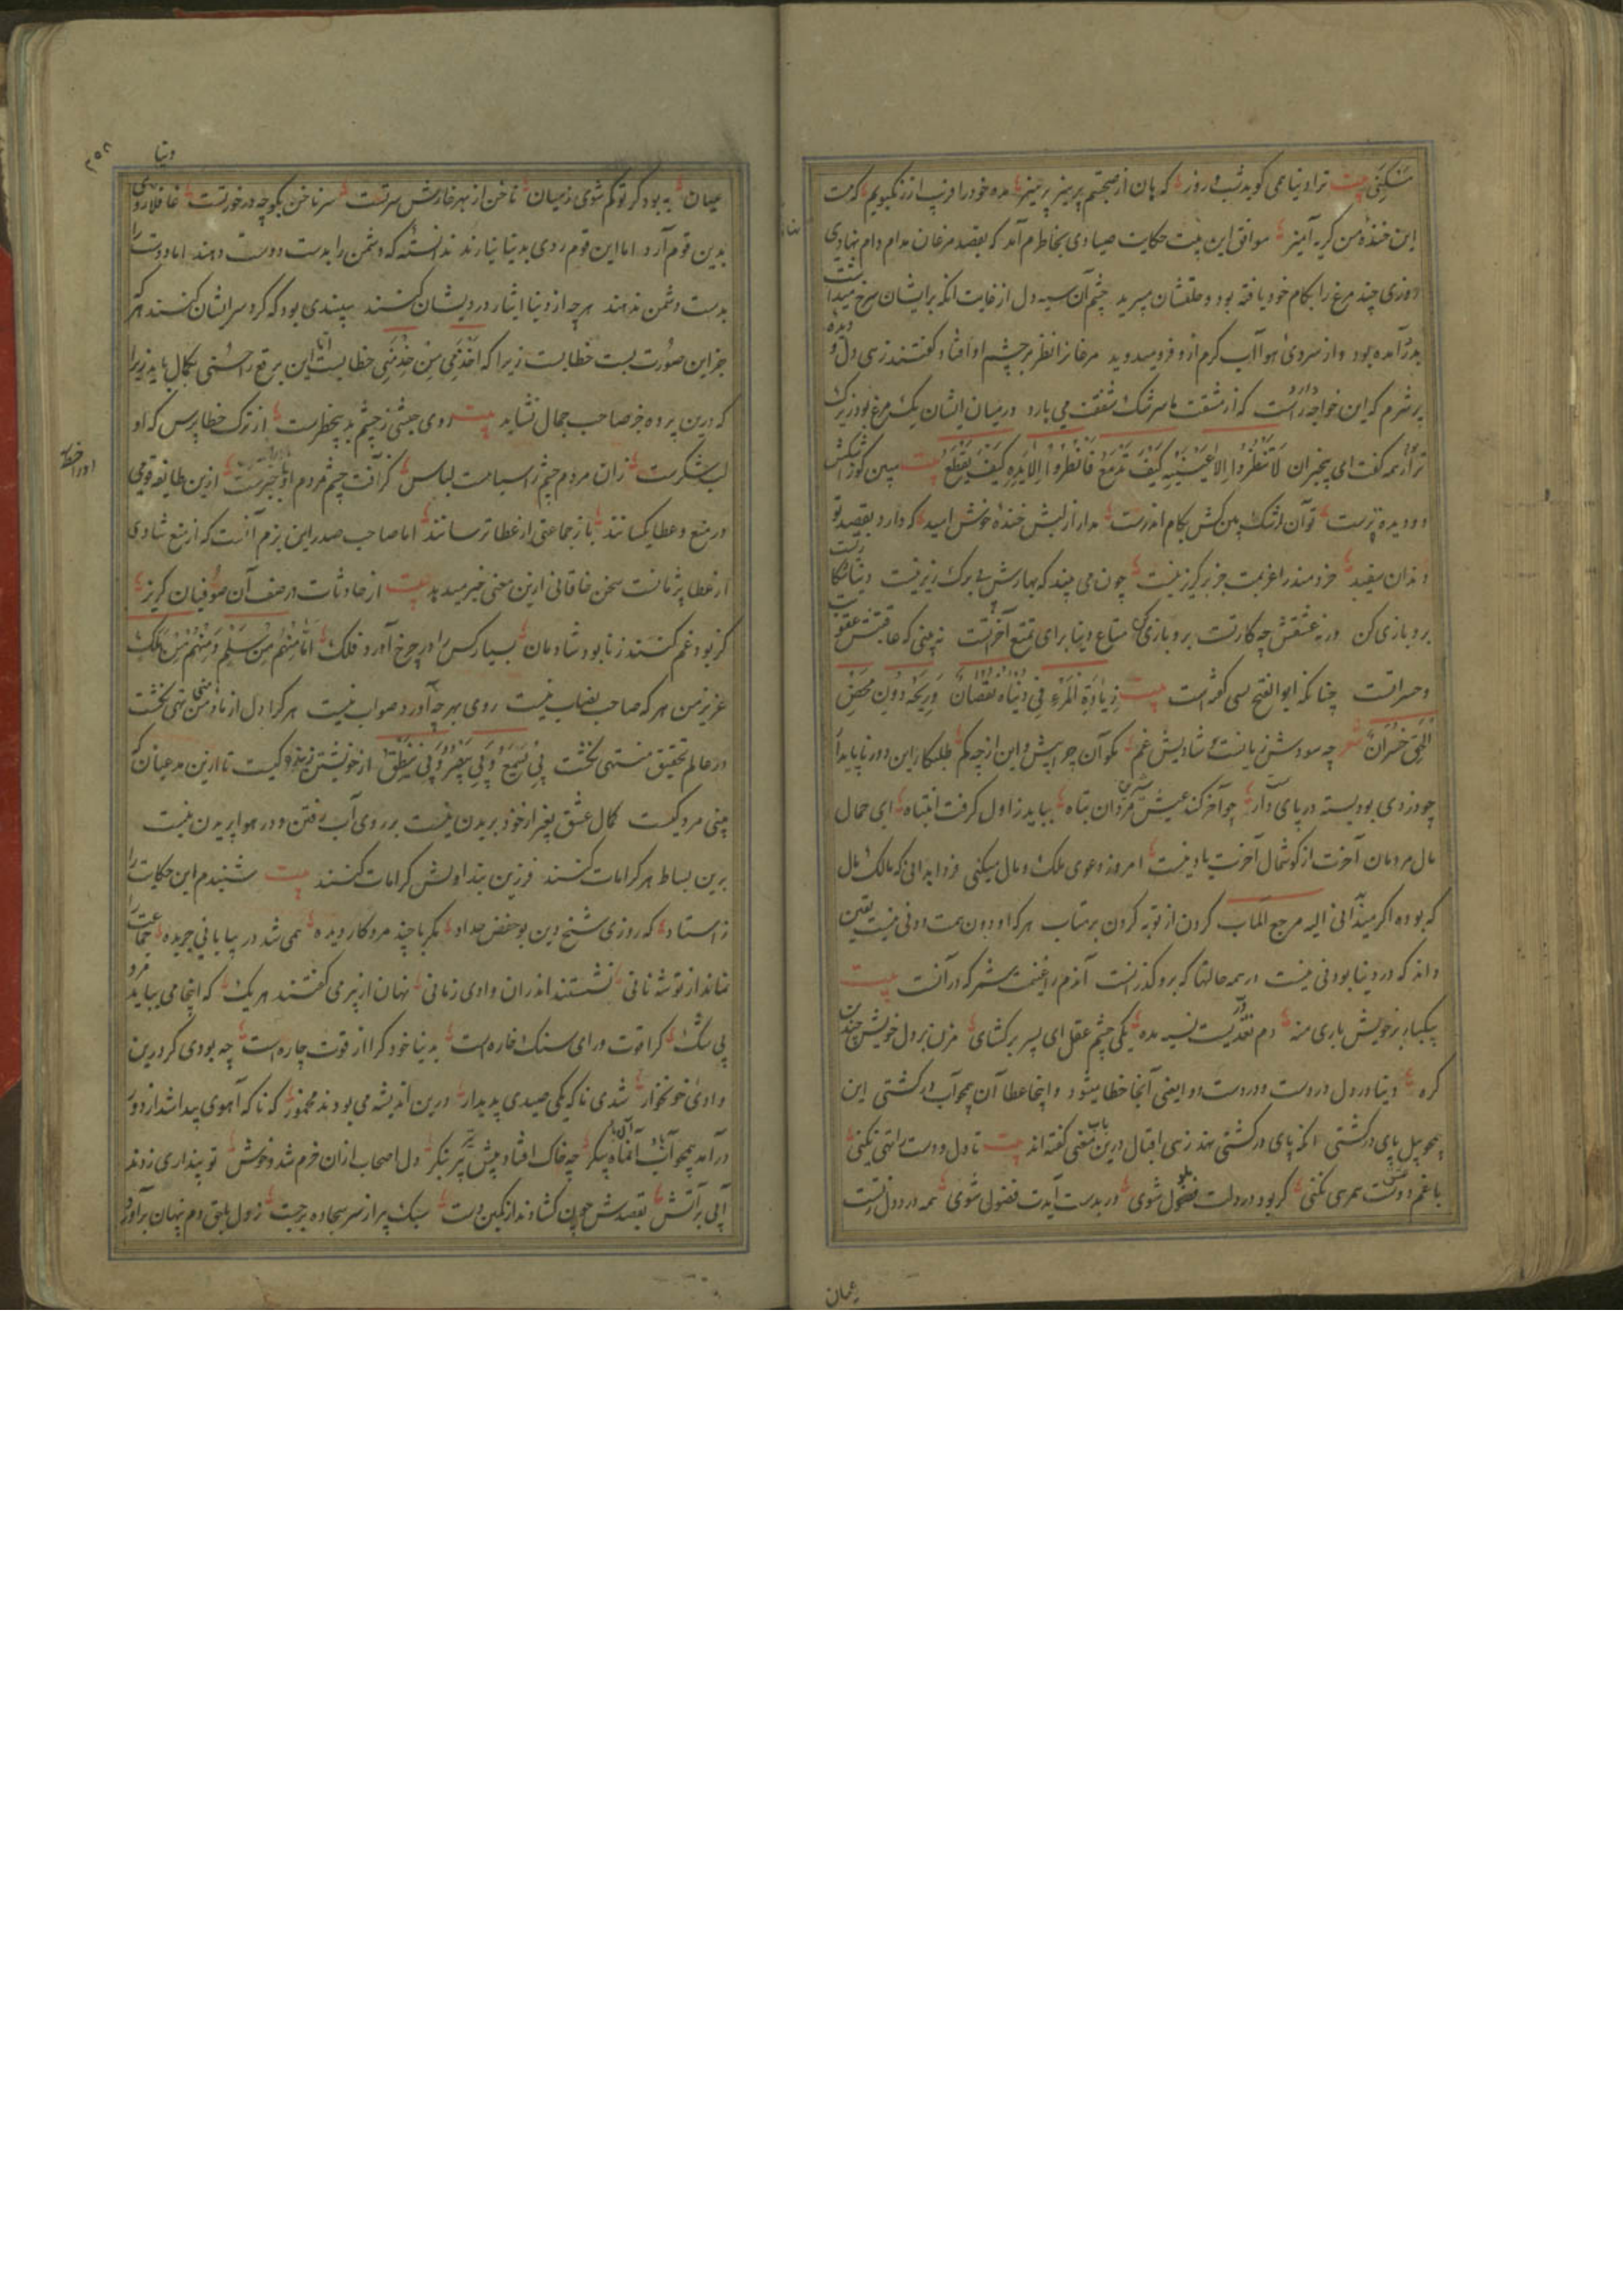 مسکنی بیت ترا دنیا همی گوید شب و روز که هان از صحبتم پرهیز پرهیز مده خود را فریب از رنگ و بویم که هست
این خنده من گریه آمیز موافق این بیت حکایت صیادی بخاطرم آمد که بقصد مرغان مدام دام نهادی
روزی چند مرغ را بکام خود یافته بود و حلقشان میبرید چشم آن سیه دل از غایت آنکه بر ایشان سرخ میداشت
بدرد آمده بود و از سردی هوا آب گرم ازو فرو میدوید مرغانرا نظر بر چشم او افتاد گفتند زهی دل و دیده
پر شرم که این خواجه راست که از شفقت ما سرشک شفقت می بارد در میان ایشان یک مرغ بود زیرک
تر از همه گفت ای بیخبران لا تنظروا الا عینیه کیف تدمع فانظروا الا یده کیف یقطع بیت مبین کوژ اشکش
دو دیده ترست تو آن بین کش بکام اندرست مدار از لبش خنده خوش امید که دارد بقصد تو
دندان سفید خردمند را عزیمت جز بر گریز نیست چون می بیند که بهارش بی برگ ریز نیست دنیا
برو بازی کن ورنه عشقش چه کارتست برو بازی متاع دنیا برای تمتع آخرتست نه بینی که عاقبتش عقوبت
و حسراتست چنانکه ابو الفتح بستی گفته است بیت زیادة المرء فی دنیاه نقصان و ربحه دون محض
الحق خسران شعر چه سودش زیانست شادیش غم مگو آن چو بیش و این از چه کم طلبکار این دور ناپایدار
چو دزدی بود بسته در پای دار چو آخر کند عیش مردان تباه بباید ز اول گرفت انتباه ای حمال
مال مردمان آخرت از گوشمال آخرت یاد نیست امروز دعوی ملک و مال میکنی فردا بدانی که مالک مال
که بوده اگر میدانی الیه مرجع المآب گردن از توبه گردن برمتاب هر که او دون همت و دنی نیست یقین
داند که در دنیا بودنی نیست در همه حالتها که برو گذرانست آندم را غنیمت شمرد که در آنست بیت
یکبار ز خویش باری منه دم نقدیست نسیه مده یکی چشم عقل ای پسر برگشای مزن بر دل خویش چندین
گره دنیا در دل دردست و در دست دوا یعنی آنجا خطا میشود و اینجا عطا آن همچو آب در کشتی این
همچو پیل پای در کشتی آنکه پای در کشتی نهد زهی اقبال درین باب معنی گفته اند بیت تا دل و دست را تهی نکنی
با غم دوست همسری نکنی گر بود در دلت فضول شوی ور بدست آیدت فضول شوی همه در دل تست
عیان
دنیا
۲۵۸
عیان به بود گر تو گم شوی ز میان ناخن از بهر خارش سر تست سر ناخن بگو چه در خور تست غافلا روی
بدین قوم آرد اما این قوم روی بدنیا نیارند ندانسته که دشمن را بدست دوست دهند اما دوست را
بدست دشمن ندهند هر چه از دنیا ایثار درویشان کنند سپندی بود که گرد سر ایشان کنند هر که
جز این صورت بست خطا بست زیرا که اخذ منی من خذ منی خطابیست اما این برقع را حسنی بکمال باید زیرا
که درین پرده جز صاحب جمال نشاید بیت روی حبشی ز چشم بد بیخطرست از ترک خطا پرس که او
لب شکرست زان مردم چشم را سیاهست لباس کز آفت چشم مردم او با خبرست ازین طایفه قومی
در منع و عطا یکسانند باز جماعتی از عطا ترسانند اما صاحب صدر این بزم آنست که از منع شادی
از عطا پژمانست سخن خاقانی ازین معنی خبر میدهد بیت از حادثات در صف آن صوفیان گریز
کز بود غم کنند ز نابود شادمان بسیار کس را در چرخ آورد فلک اما منهم من سلم و منهم من هلک
عزیز من هر که صاحب نصاب نیست روی بهر چه آورد صواب نیست هر کرا دل از ما و منی تهی نگشت
در عالم تحقیق منتهی نگشت بی یسمع و بی یبصر و بی ینطق از خویشتن کیست تا ازین مدعیان که
بینی مرد کیست کمال عشق بغیر از خود بریدن نیست بر روی آب رفتن و در هوا پریدن نیست
برین بساط هر کرا مات کنند فرزین بند اولش کرامات کنند بیت شنیدم این حکایت را
ز استاد که روزی شیخ دین بو حفص حداد مگر با چند مرد کار دیده همی شد در بیابانی جریده جماعت را
نماند از توشه نانی نشستند اندران وادی زمانی نهان از پیر می گفتند هر یک که اینجا می بباید مرد
بی شک کرا قوت ورای سنگ خاره است بدنیا خود کرا از قوت چاره است چه بودی گر درین
وادی خونخوار شدی ناگه یکی صیدی پدیدار درین اندیشه می بودند مخمور که ناگه آهوی پیدا شد از دور
در آمد همچو آب آن ماه پیکر چه خاک افتاد پیش پیر بنگر دل اصحاب ازان خرم شد و خوش تو پنداری زدند
آبی بر آتش بقصدش چون گشادند از کمین دست سبک پیر از سر سجاده برجست ز دل بلبق دم پنهان برآورد